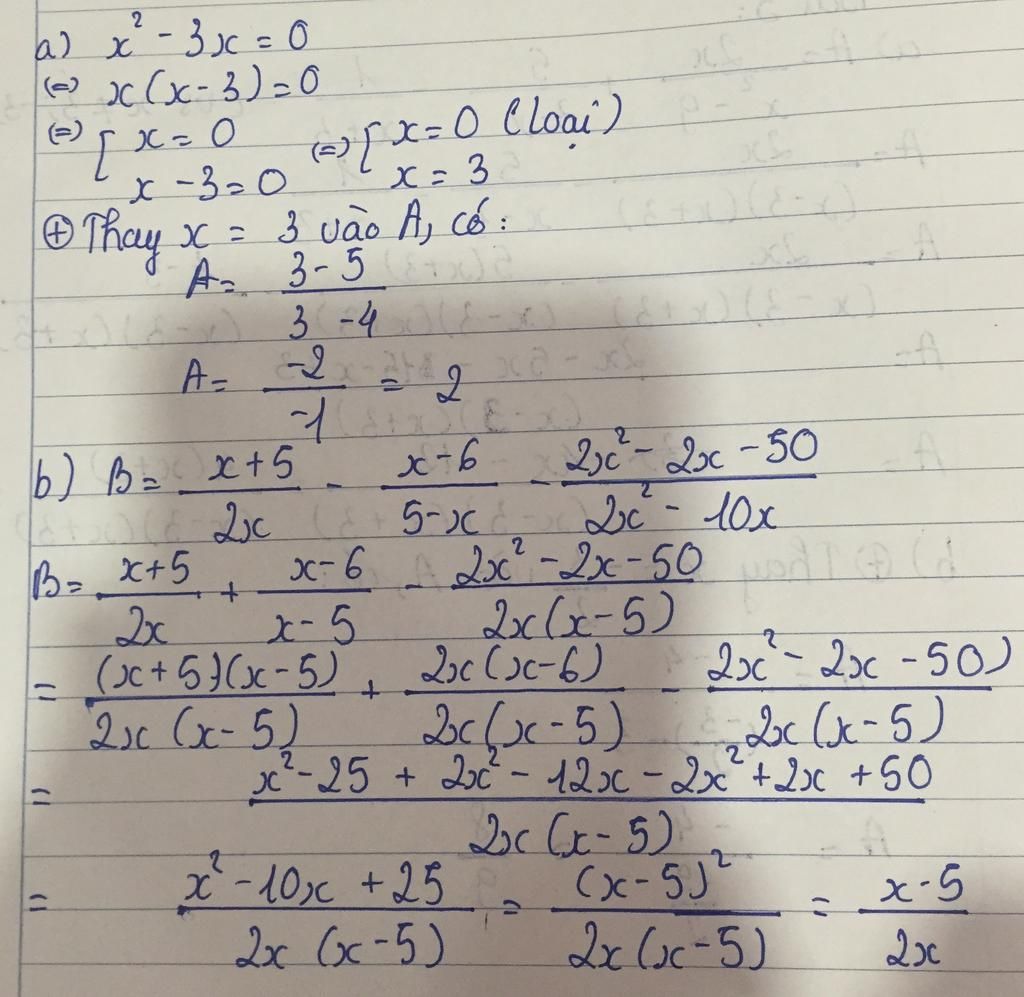 a) x² - 3x = 0
(=) x(x-3) = 0
(=) [ x = 0 (=) [ x = 0 (loại)
x - 3 = 0 x = 3
⊕ Thay x = 3 vào A, có:
A = (3 - 5)/(3 - 4)
A = (-2)/(-1) = 2
b) B = (x+5)/(2x) - (x-6)/(5-x) - (2x² - 2x - 50)/(2x² - 10x)
B = (x+5)/(2x) + (x-6)/(x-5) - (2x² - 2x - 50)/(2x(x-5))
= ((x+5)(x-5))/(2x(x-5)) + (2x(x-6))/(2x(x-5)) - (2x² - 2x - 50))/(2x(x-5))
= (x² - 25 + 2x² - 12x - 2x² + 2x + 50)/(2x(x-5))
= (x² - 10x + 25)/(2x(x-5)) = (x-5)²/(2x(x-5)) = (x-5)/(2x)